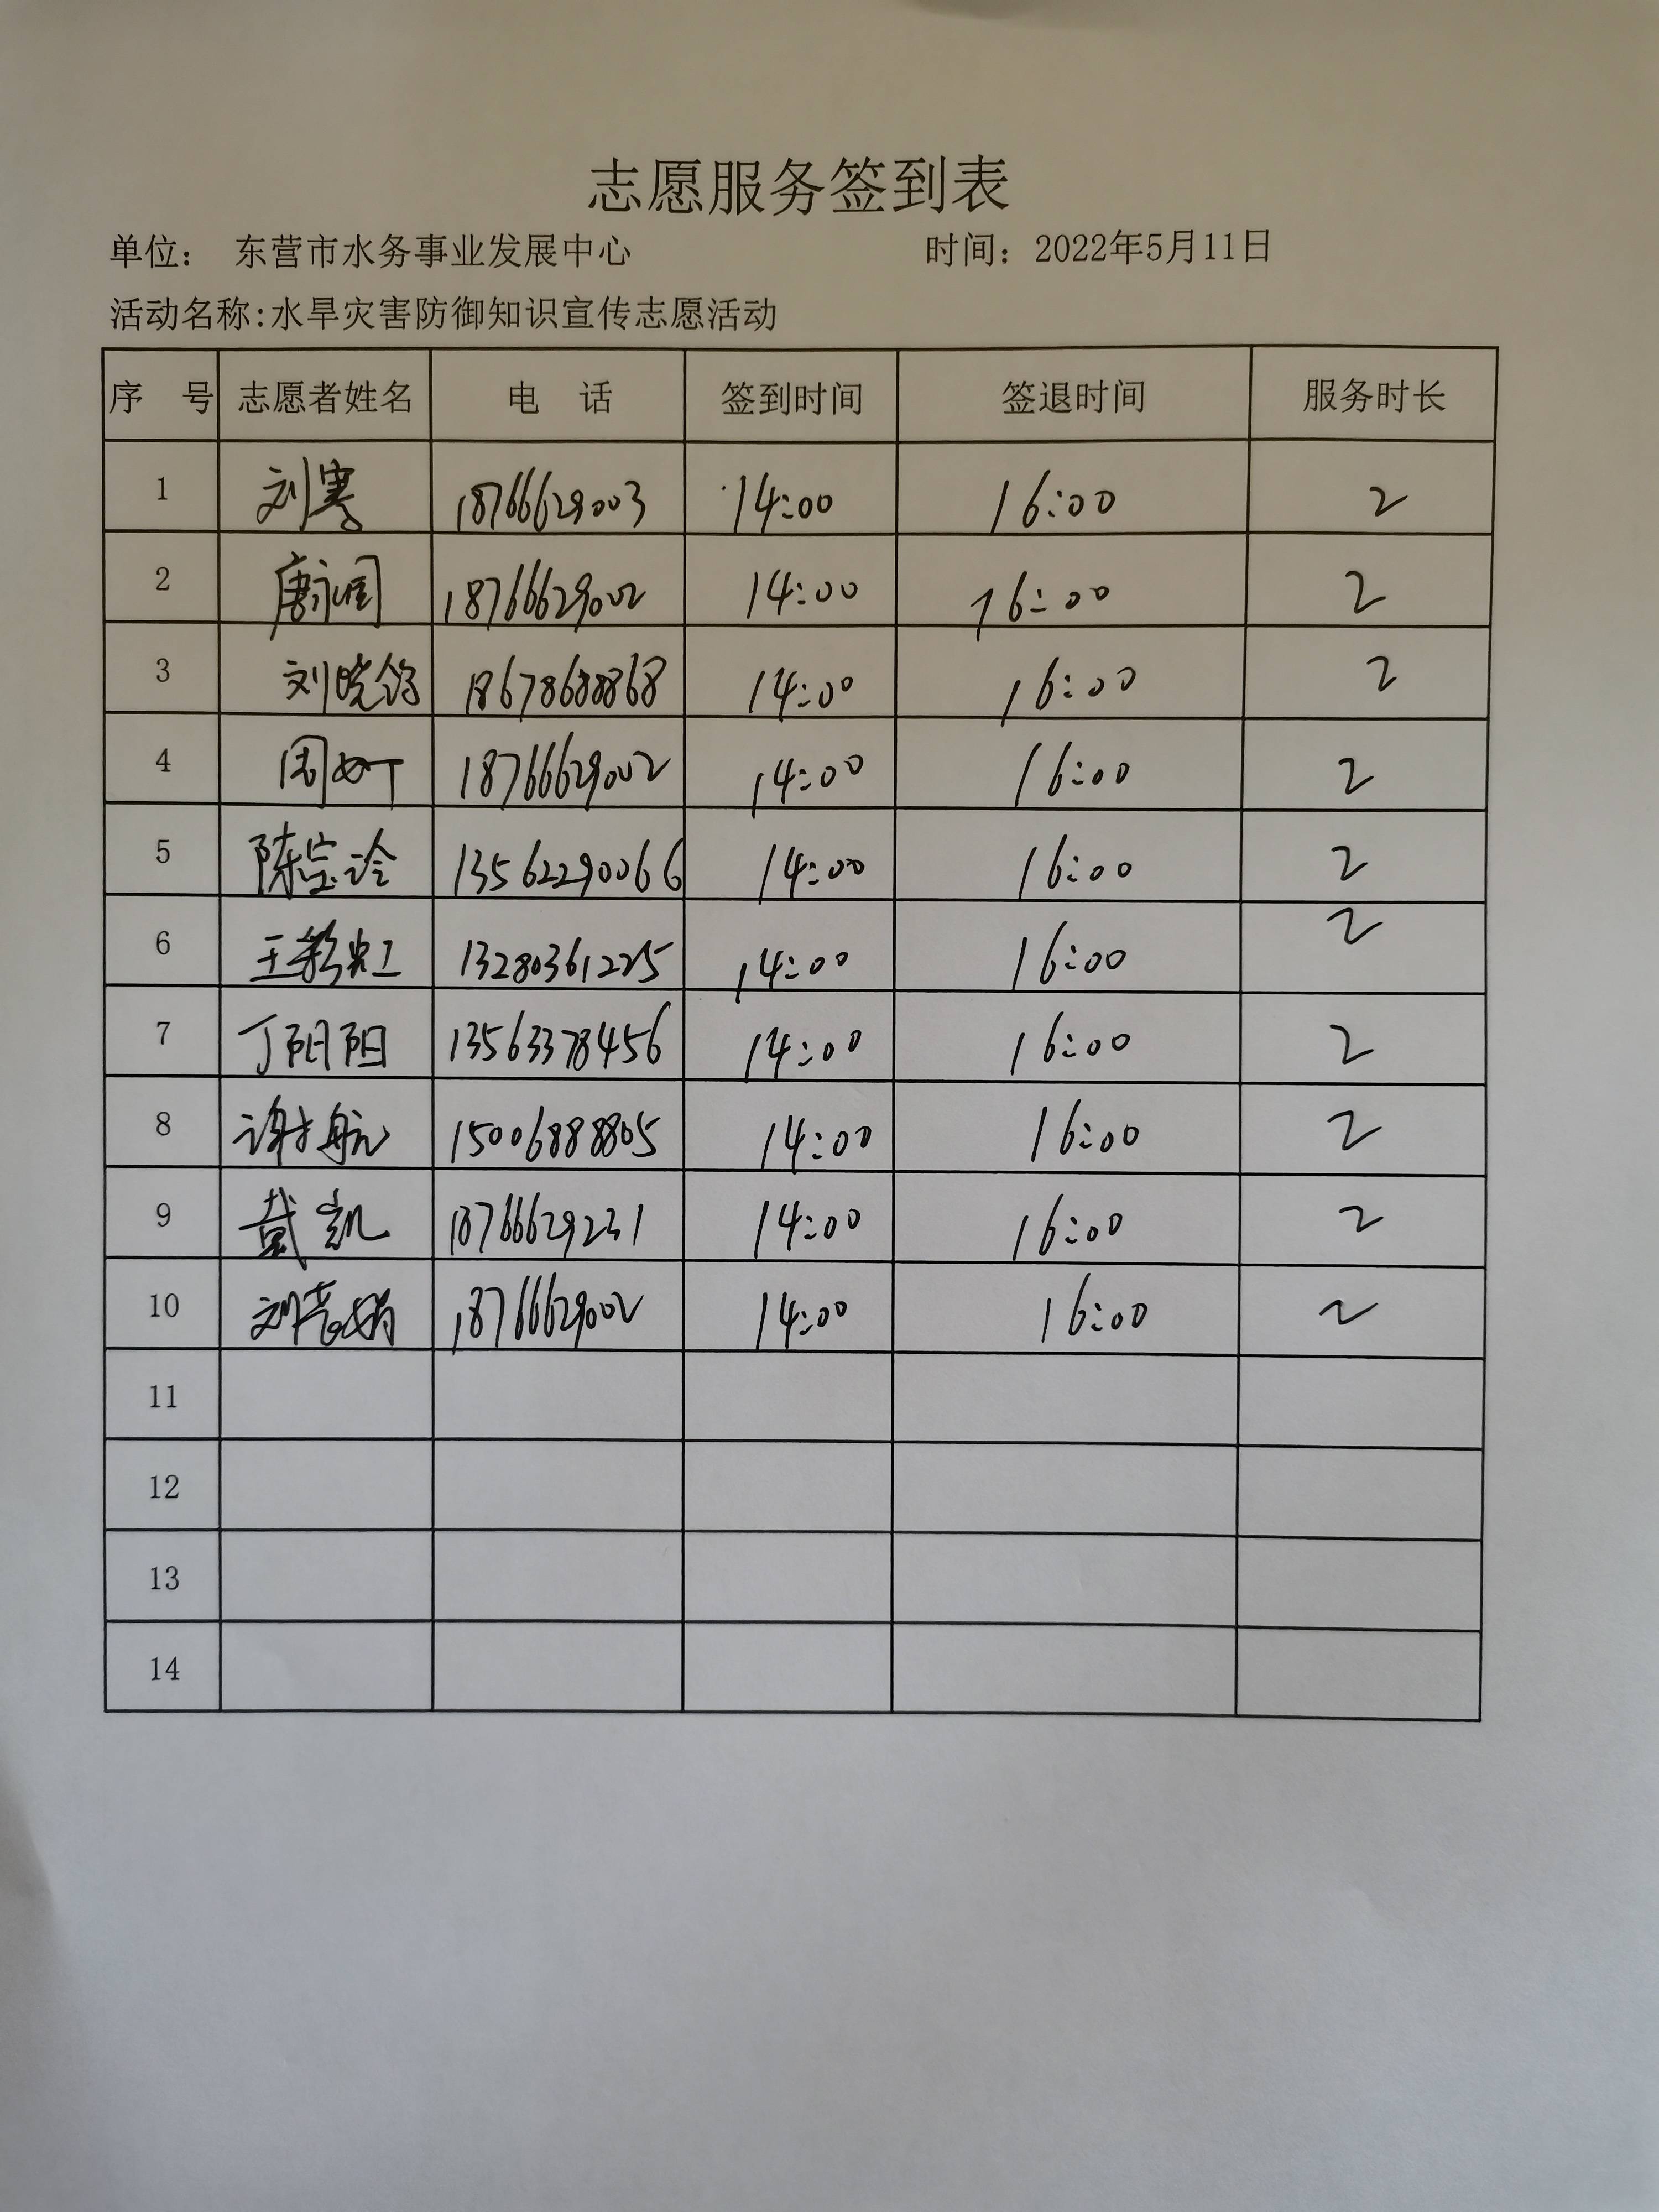 志愿服务签到表
单位： 东营市水务事业发展中心 时间：2022年5月11日
活动名称:水旱灾害防御知识宣传志愿活动
序 号 志愿者姓名 电 话 签到时间 签退时间 服务时长
1 刘寒 18766629003 14:00 16:00 2
2 唐 18766629002 14:00 16:00 2
3 刘晓 18678688868 14:00 16:00 2
4 周 18766629002 14:00 16:00 2
5 陈宝玲 13562290066 14:00 16:00 2
6 王彩虹 13280361225 14:00 16:00 2
7 丁阳阳 13563378456 14:00 16:00 2
8 谢航 15006888805 14:00 16:00 2
9 戴凯 18766629231 14:00 16:00 2
10 刘 18766629002 14:00 16:00 2
11
12
13
14